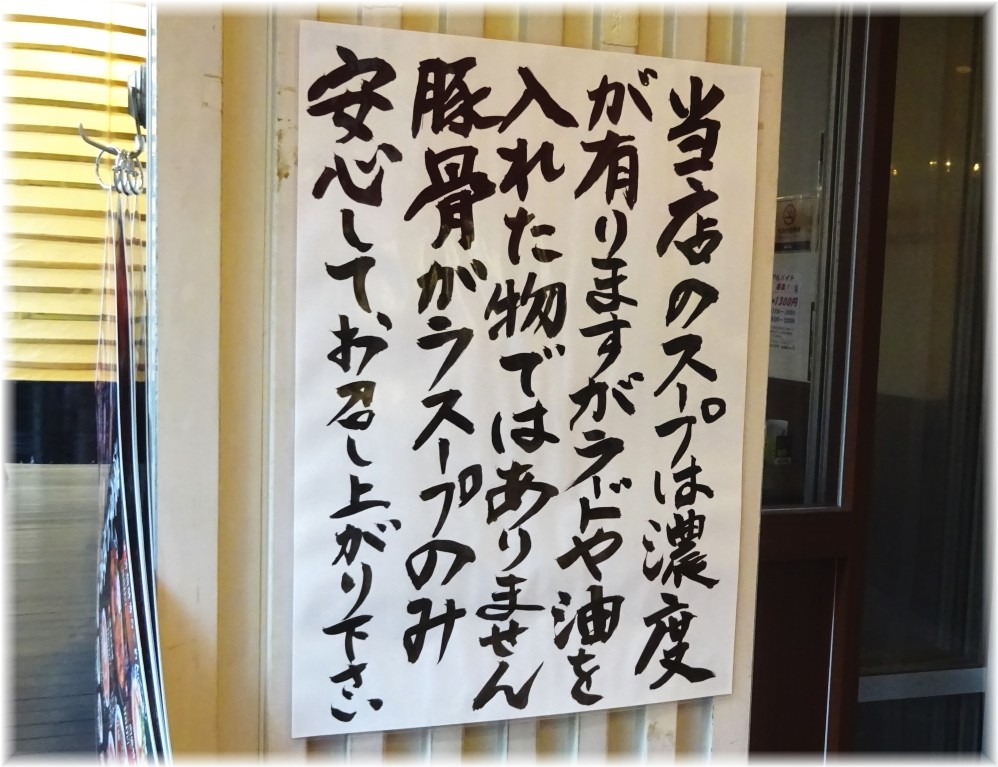 当店のスープは濃度
が有りますがラードや油を
入れた物ではありません
豚骨ガラスープのみ
安心してお召し上がり下さい